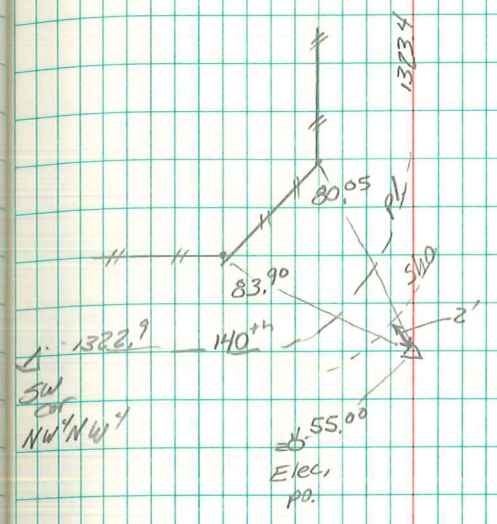 1323.4
80.05
P/L
ShD
83.90
2'
1322.9
140th
SW
cor
NW4NW4
55.00
Elec,
po.